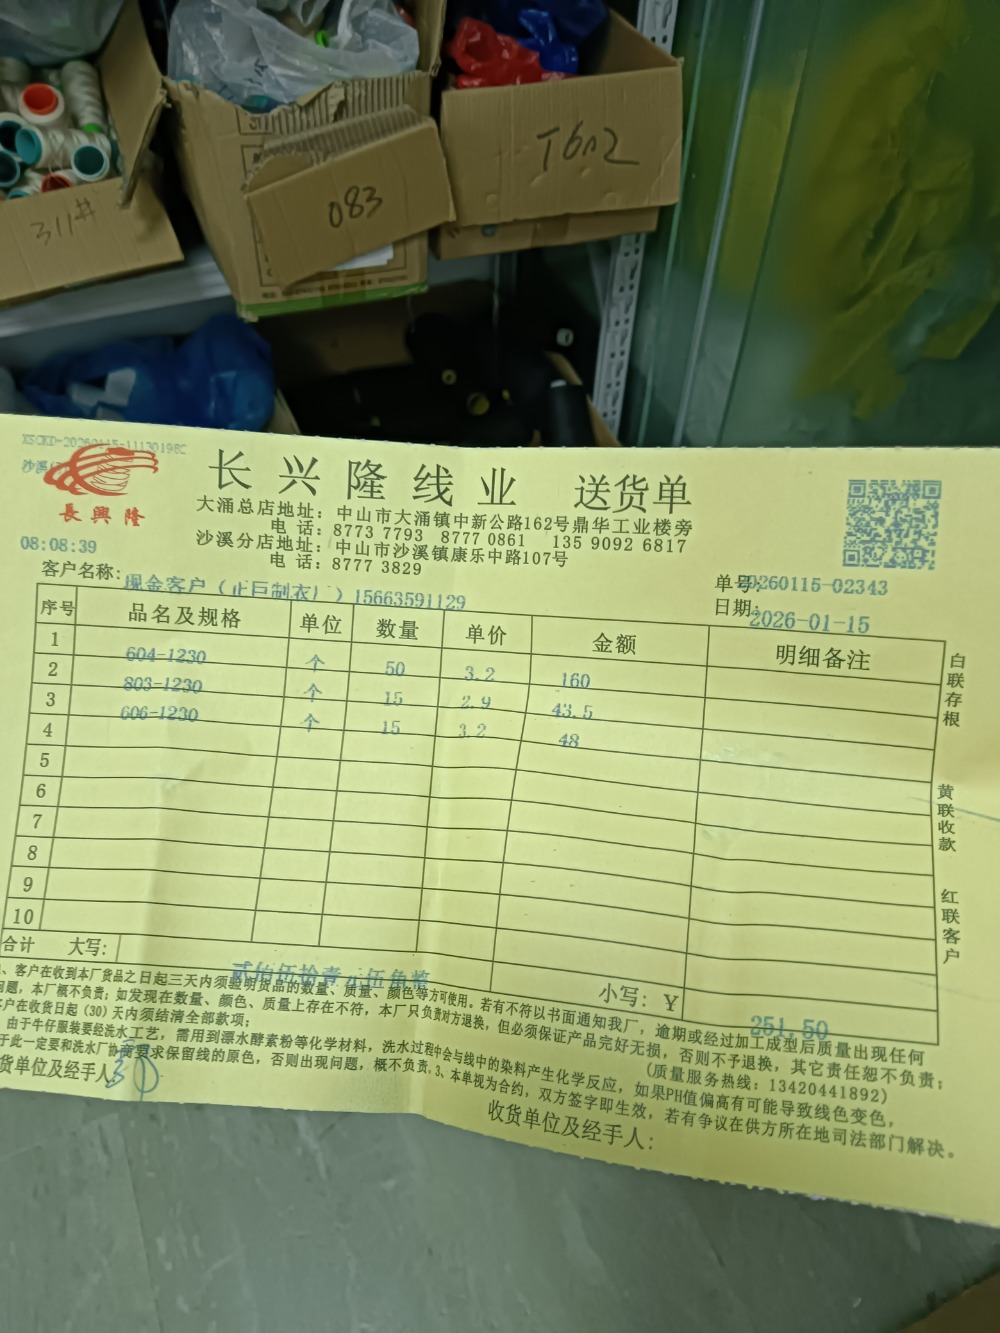 311#
083
T6n2
XSCKD-20260115-11130198C
沙溪
長興隆
长兴隆线业 送货单
大涌总店地址：中山市大涌镇中新公路162号鼎华工业楼旁
电话：8773 7793 8777 0861 135 9092 6817
沙溪分店地址：中山市沙溪镇康乐中路107号
电话：8777 3829
08:08:39
客户名称：现金客户（正巨制衣厂）15663591129
单号：20260115-02343
日期：2026-01-15
序号 品名及规格 单位 数量 单价 金额 明细备注
1 604-1230 个 50 3.2 160
2 803-1230 个 15 2.9 43.5
3 606-1230 个 15 3.2 48
4
5
6
7
8
9
10
合计 大写：贰佰伍拾壹元伍角整 小写：￥ 251.50
白联存根
黄联收款
红联客户
、客户在收到本厂货品之日起三天内须验明货品的数量、质量、颜色等方可使用。若有不符以书面通知我厂，逾期或经过加工成型后质量出现任何
问题，本厂概不负责；如发现在数量、颜色、质量上存在不符，本厂只负责对方退换，但必须保证产品完好无损，否则不予退换，其它责任恕不负责；
客户在收货日起(30)天内须结清全部款项；
(质量服务热线：13420441892)
由于牛仔服装要经洗水工艺，需用到漂水酵素粉等化学材料，洗水过程中会与线中的染料产生化学反应，如果PH值偏高有可能导致线色变色，
于此一定要和洗水厂协商要求保留线的原色，否则出现问题，概不负责。3、本单视为合约，双方签字即生效，若有争议在供方所在地司法部门解决。
货单位及经手人
收货单位及经手人：